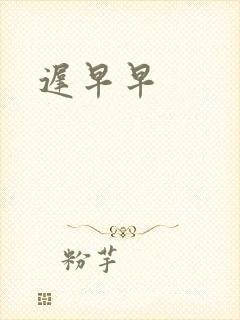 遲早早
粉芋